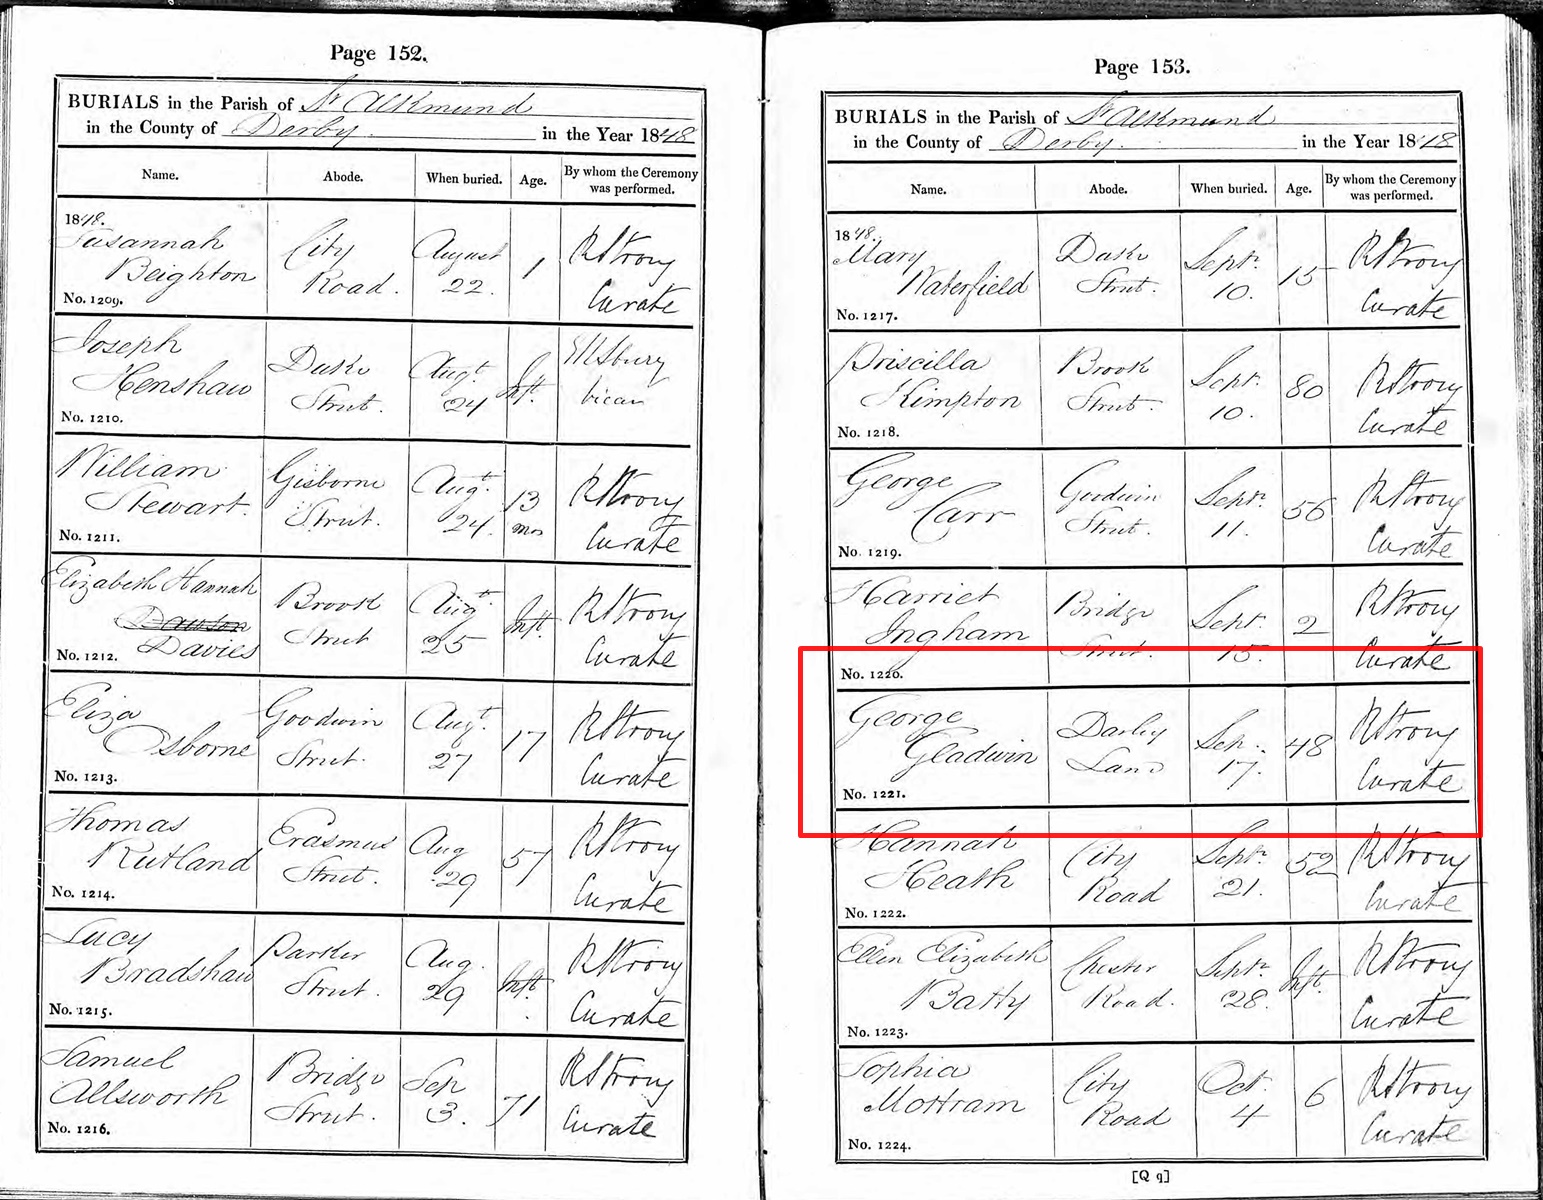 Page 152.
BURIALS in the Parish of St Alkmund
in the County of Derby in the Year 1848
Name. Abode. When buried. Age. By whom the Ceremony was performed.
1848.
Susannah City August 1 RStrong
Beighton Road. 22. Curate
No. 1209.
Joseph Duke Augt Inft.
Henshaw Street. 24 Vicar
No. 1210.
William Gisborne Augt. 13 RStrong
Stewart. Street. 24. mos Curate
No. 1211.
Elizabeth Hannah Brook Augt Inft. RStrong
Dawson
Davies Street 25 Curate
No. 1212.
Eliza Goodwin Augt. 17 RStrong
Osborne Street. 27 Curate
No. 1213.
Thomas Erasmus Aug 57 RStrong
Rutland Street. 29 Curate
No. 1214.
Lucy Parker Aug. Inft. RStrong
Bradshaw Street. 29 Curate
No. 1215.
Samuel Bridge Sep 71 RStrong
Allsworth Street. 3. Curate
No. 1216.
Page 153.
BURIALS in the Parish of St Alkmund
in the County of Derby. in the Year 1848
Name. Abode. When buried. Age. By whom the Ceremony was performed.
1848.
Mary Duke Septr. 15 RStrong
Waterfield Street. 10. Curate
No. 1217.
Priscilla Brook Sept. 80 RStrong
Kimpton Street. 10. Curate
No. 1218.
George Goodwin Septr 56 RStrong
Carr Street. 11. Curate
No. 1219.
Harriet Bridge Sept. 2 RStrong
Ingham Street. 15. Curate
No. 1220.
George Darley Sep. 48 RStrong
Gladwin Lane 17. Curate
No. 1221.
Hannah City Septr 52 RStrong
Heath Road 21. Curate
No. 1222.
Ellen Elizabeth Chester Septr Inft. RStrong
Batty Road. 28. Curate
No. 1223.
Sophia City Oct. 6 RStrong
Mottram Road 4 Curate
No. 1224.
[Q q]